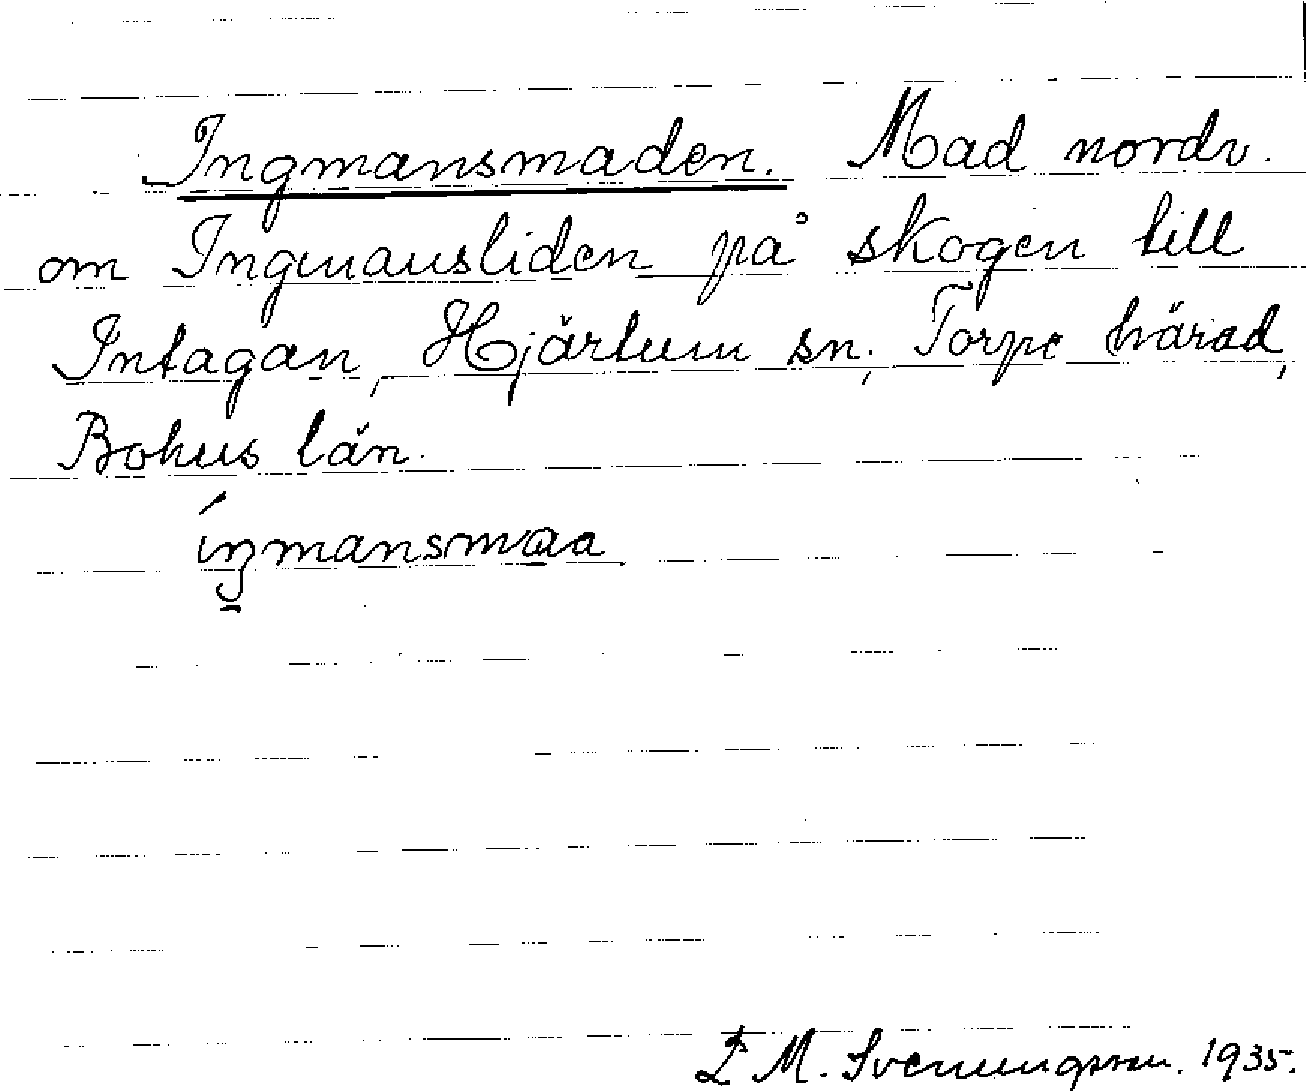 Ingmansmaden. Mad nordv.
om Ingmansliden på skogen till
Intagan, Hjärtum sn, Torpe härad,
Bohus län.
íŋmansmaa
M. Svenungsson. 1935.